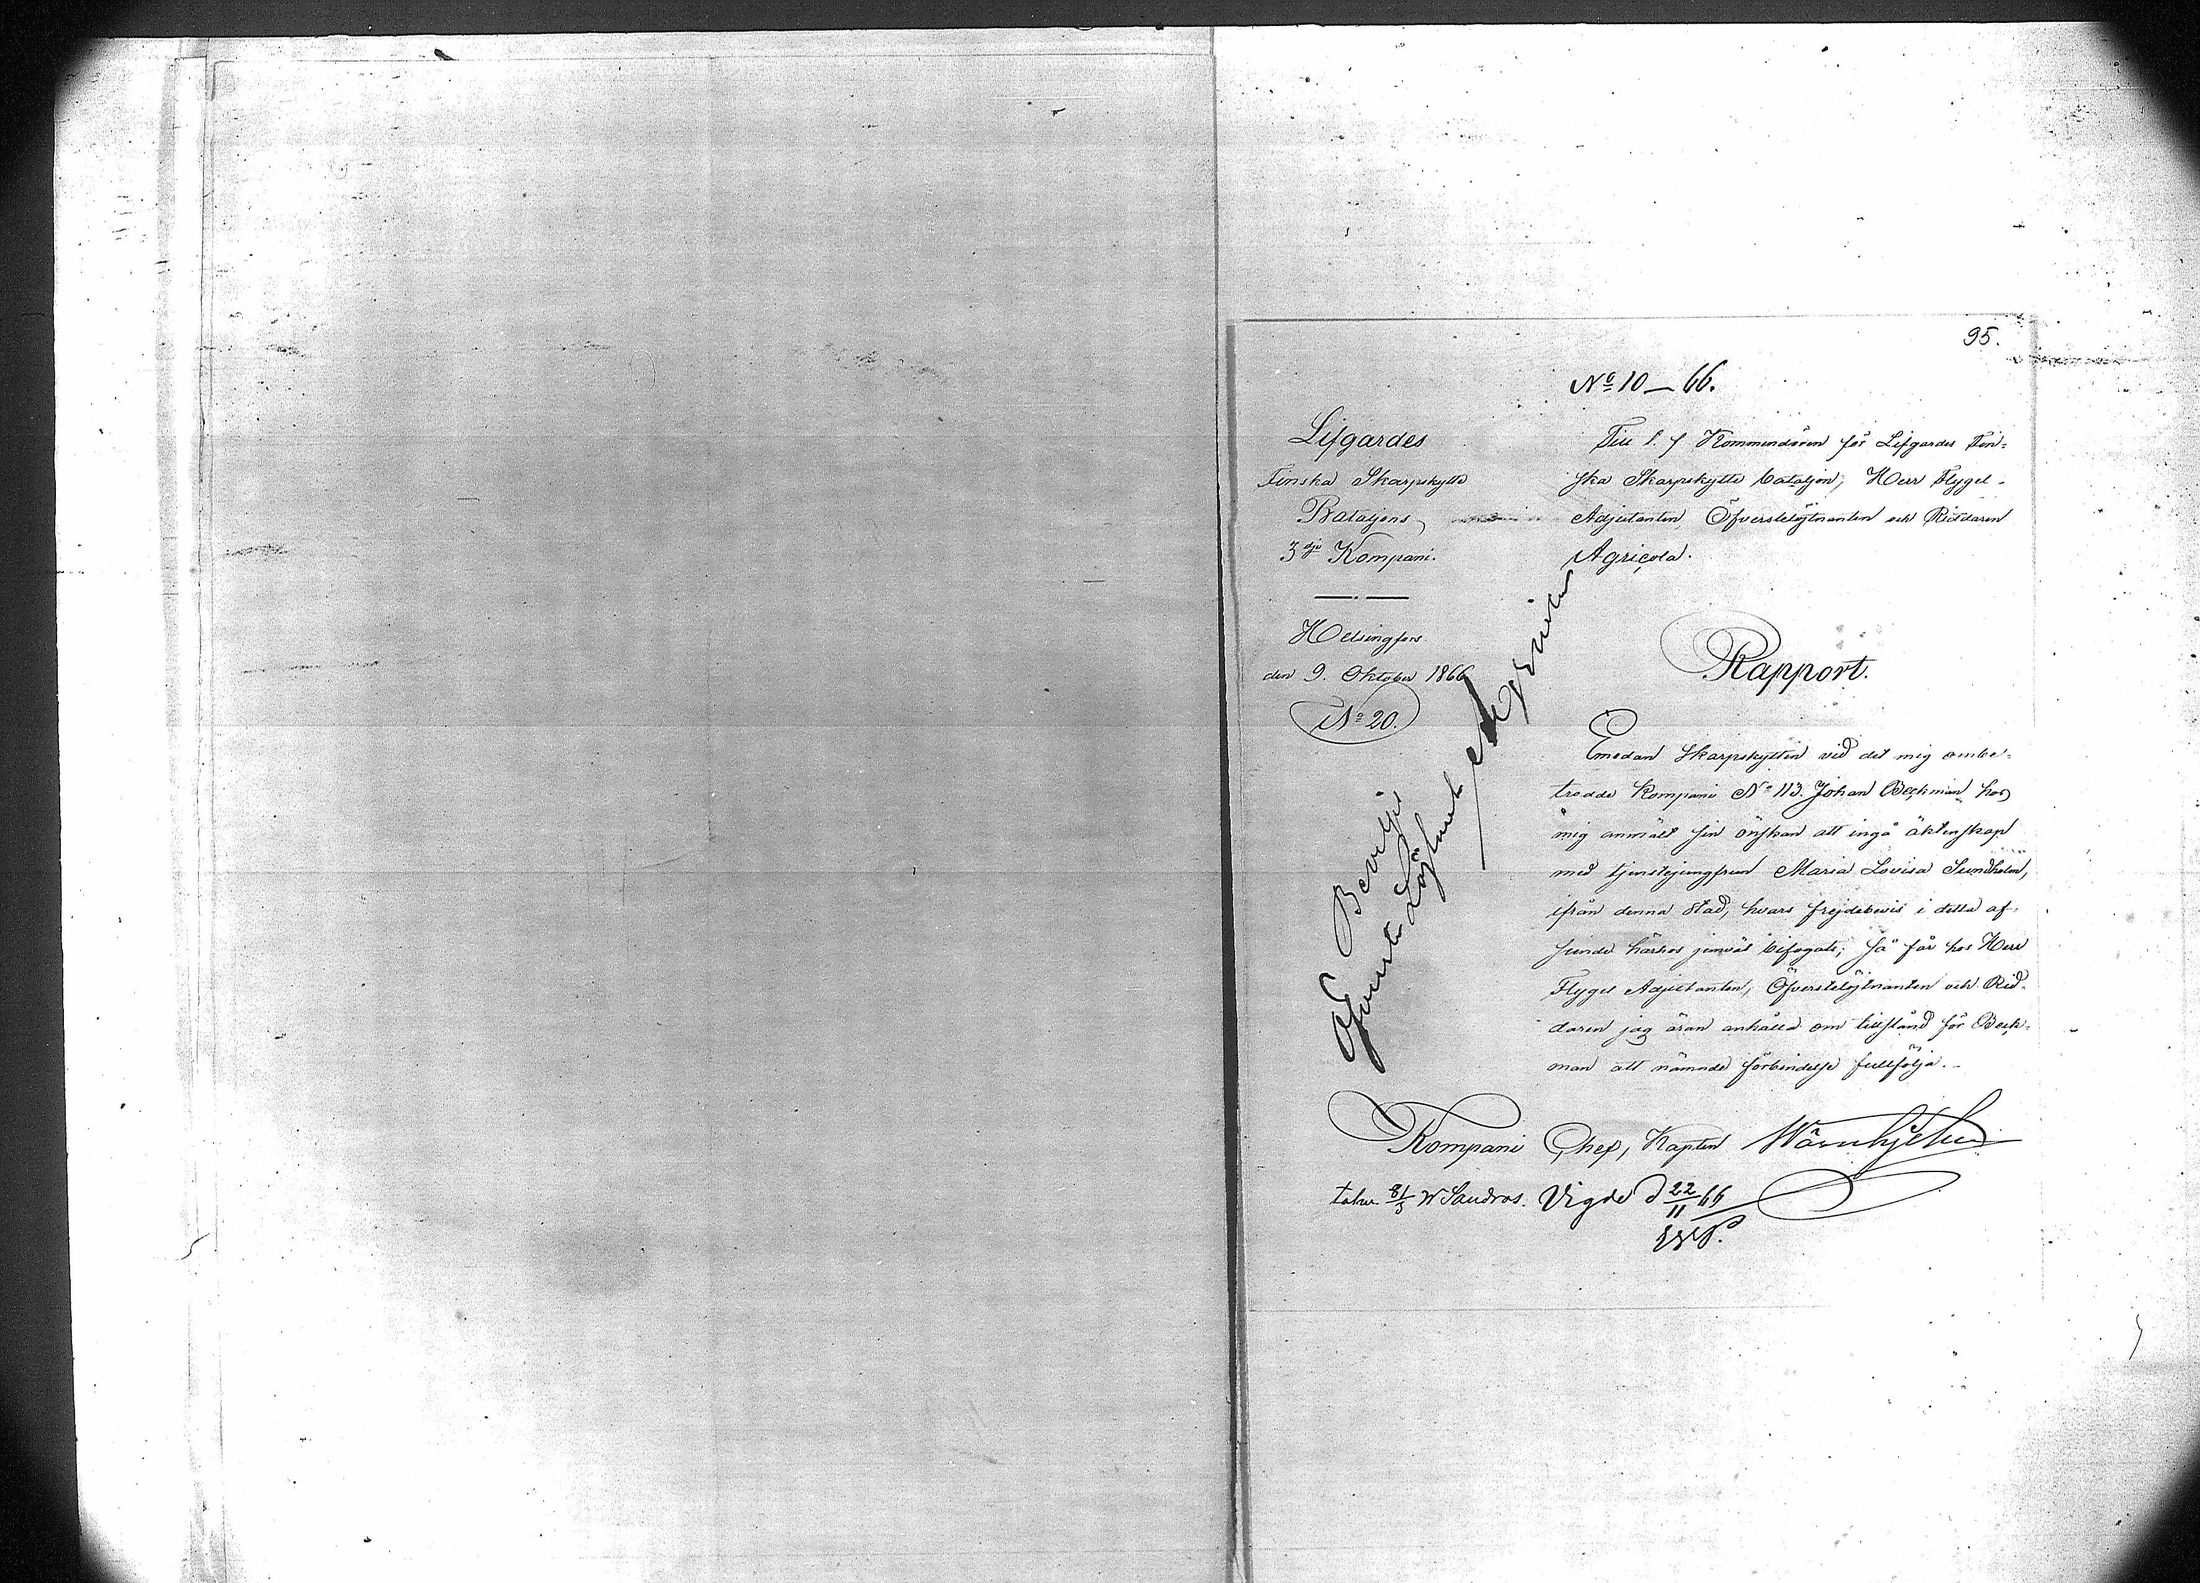 95.
No 10 — 66.
Lifgardes
Finska Skarpskytte
Bataljons
3dje Kompani.
Helsingfors
den 9. Oktober 1866
No 20.
Till t. f. Kommendören för Lifgardes Fin=
ska Skarpskytte bataljon, Herr Flygel-
Adjutanten Öfverstelöjtnanten och Riddaren
Agricola.
Rapport.
Emedan Skarpskytten vid det mig ombe-
trodde Kompani No 113. Johan Beckman hos
mig anmält sin önskan att ingå äktenskap
med tjenstejungfrun Maria Lovisa Sundholm,
ifrån denna stad, hvars frejdebevis i detta af-
seende härhos jemväl bifogats; så får hos Herr
Flygel Adjutanten, Öfverstelöjtnanten och Rid-
daren jag äran anhålla om tillstånd för Beck-
man att nämnde förbindelse fullfölja.
Beviljes
Öfverste Löjtnant Agricola
Kompani Chef, Kapten Wärnhjelm
W Sandros. Vigde d 22/11 66